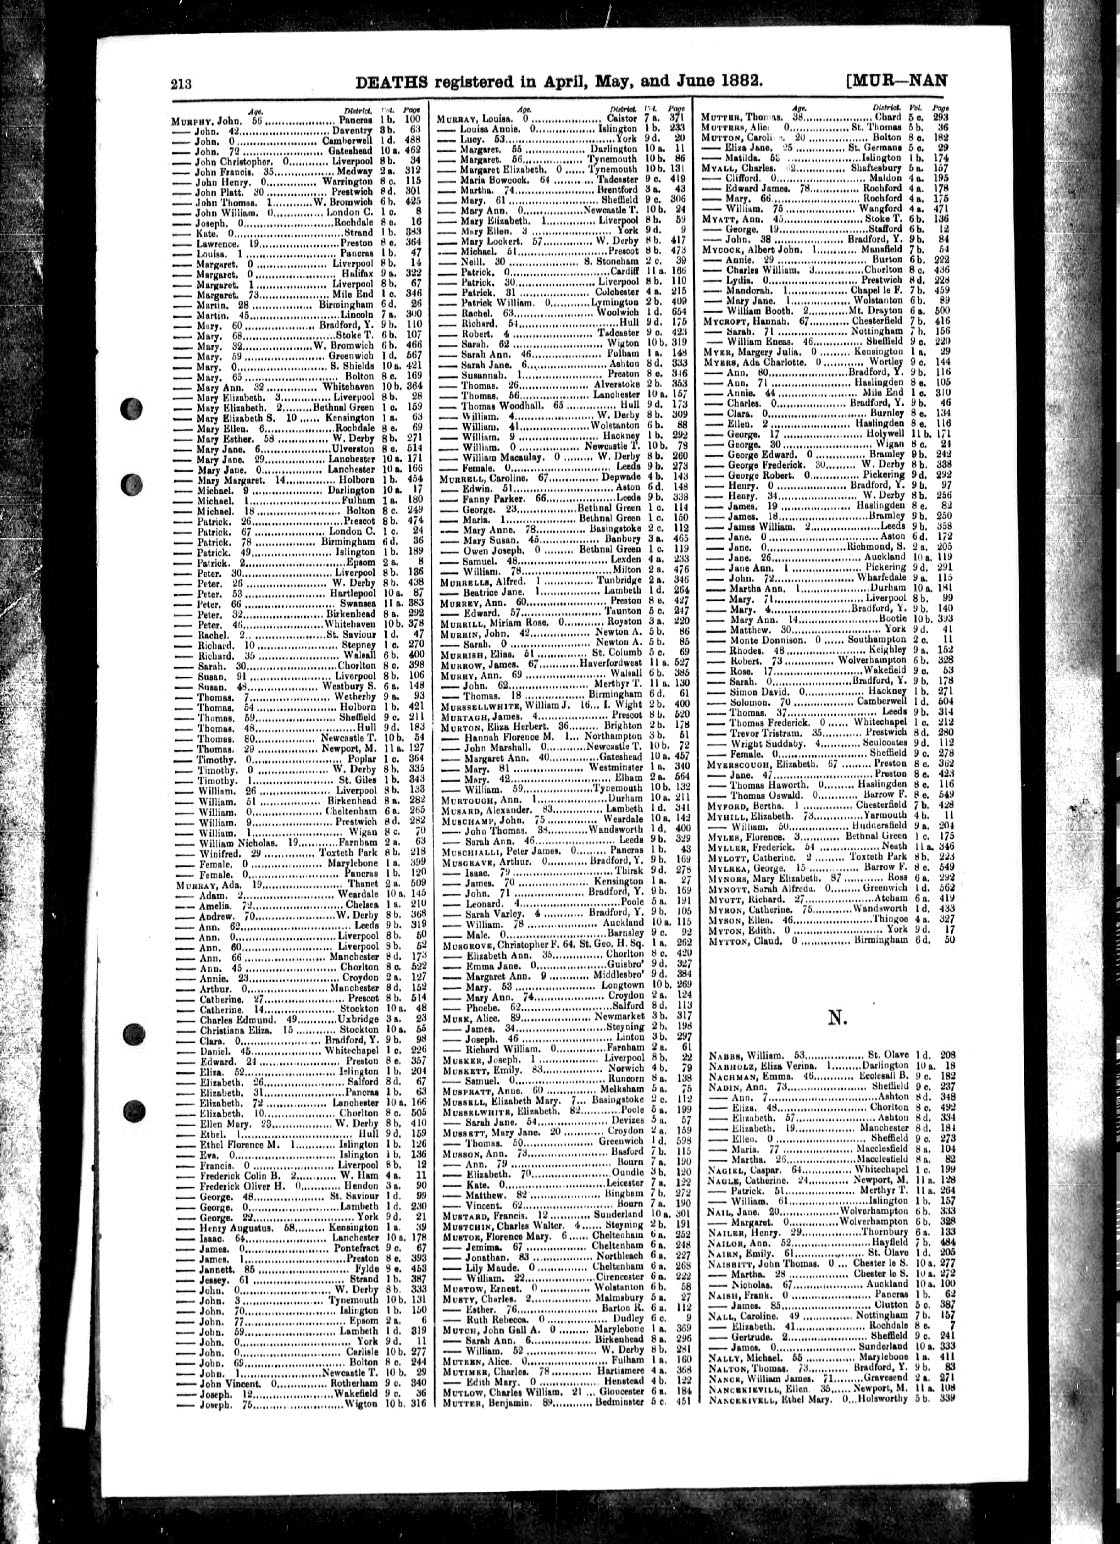 213 DEATHS registered in April, May, and June 1882. [MUR—NAN
Age. District. Vol. Page
MURPHY, John. 56 .................. Pancras 1 b. 100
— John. 42................... Daventry 3 b. 63
— John. 0 .................. Camberwell 1 d. 488
— John. 72 ................. Gateshead 10 a. 462
— John Christopher. 0........... Liverpool 8 b. 34
— John Francis. 35............... Medway 2 a. 312
— John Henry. 0............ Warrington 8 c. 115
— John Platt. 30 ............ Prestwich 8 d. 301
— John Thomas. 1......... W. Bromwich 6 b. 425
— John William. 0............ London C. 1 c. 8
— Joseph. 0.......................Rochdale 8 e. 16
— Kate. 0..........................Strand 1 b. 383
— Lawrence. 19................... Preston 8 e. 364
— Louisa. 1 ...................... Pancras 1 b. 47
— Margaret. 0 ................ Liverpool 8 b. 14
— Margaret. 0 .................. Halifax 9 a. 322
— Margaret. 1 ................ Liverpool 8 b. 67
— Margaret. 73............... Mile End 1 c. 346
— Martin. 28 .............. Birmingham 6 d. 26
— Martin. 45.................... Lincoln 7 a. 300
— Mary. 60 ............... Bradford, Y. 9 b. 110
— Mary. 68....................Stoke T. 6 b. 107
— Mary. 32............... W. Bromwich 6 b. 466
— Mary. 59 ................. Greenwich 1 d. 567
— Mary. 0................... S. Shields 10 a. 421
— Mary. 65 ..................... Bolton 8 c. 169
— Mary Ann. 32 ........... Whitehaven 10 b. 364
— Mary Elizabeth. 3.......... Liverpool 8 b. 28
— Mary Elizabeth. 2....... Bethnal Green 1 c. 159
— Mary Elizabeth S. 10 ...... Kensington 1 a. 63
— Mary Ellen. 6................Rochdale 8 e. 69
— Mary Esther. 58 ............ W. Derby 8 b. 271
— Mary Jane. 6................ Ulverston 8 e. 514
— Mary Jane. 29............ Lanchester 10 a. 171
— Mary Jane. 0............. Lanchester 10 a. 166
— Mary Margaret. 14........... Holborn 1 b. 454
— Michael. 9 ................ Darlington 10 a. 17
— Michael. 1.................... Fulham 1 a. 180
— Michael. 18 ................... Bolton 8 c. 249
— Patrick. 26................... Prescot 8 b. 474
— Patrick. 67 ................ London C. 1 c. 24
— Patrick. 78 ............. Birmingham 6 d. 36
— Patrick. 49.................. Islington 1 b. 189
— Patrick. 2..................... Epsom 2 a. 8
— Peter. 30................... Liverpool 8 b. 136
— Peter. 26 .................. W. Derby 8 b. 438
— Peter. 53 ................. Hartlepool 10 a. 87
— Peter. 66 ................... Swansea 11 a. 383
— Peter. 32................. Birkenhead 8 a. 292
— Peter. 46................Whitehaven 10 b. 378
— Rachel. 2.................. St. Saviour 1 d. 47
— Richard. 10 ................. Stepney 1 c. 270
— Richard. 35 .................. Walsall 6 b. 400
— Sarah. 30.................... Chorlton 8 c. 398
— Susan. 91 .................. Liverpool 8 b. 106
— Susan. 48................ Westbury S. 6 a. 148
— Thomas. 7.................. Wetherby 9 a. 93
— Thomas. 54 ................. Holborn 1 b. 421
— Thomas. 59.................. Sheffield 9 c. 211
— Thomas. 48...................... Hull 9 d. 183
— Thomas. 80.............. Newcastle T. 10 b. 54
— Thomas. 29 .............. Newport, M. 11 a. 127
— Timothy. 0.................... Poplar 1 c. 364
— Timothy. 0 ................ W. Derby 8 b. 335
— Timothy. 1................. St. Giles 1 b. 343
— William. 26 ................ Liverpool 8 b. 133
— William. 51 .............. Birkenhead 8 a. 282
— William. 0.............. Cheltenham 6 a. 265
— William. 9................. Prestwich 8 d. 282
— William. 1.................... Wigan 8 c. 70
— William Nicholas. 19......... Farnham 2 a. 63
— Winifred. 29 ........... Toxteth Park 8 b. 218
— Female. 0 ................ Marylebone 1 a. 399
— Female. 0................... Pancras 1 b. 120
MURRAY, Ada. 19................... Thanet 2 a. 509
— Adam. 2.................. Weardale 10 a. 145
— Amelia. 72.................. Chelsea 1 a. 210
— Andrew. 70................. W. Derby 8 b. 368
— Ann. 62....................... Leeds 9 b. 319
— Ann. 0.................... Liverpool 8 b. 50
— Ann. 60................... Liverpool 8 b. 52
— Ann. 66 ................ Manchester 8 d. 173
— Ann. 45 ................... Chorlton 8 c. 522
— Annie. 23................... Croydon 2 a. 127
— Arthur. 0................ Manchester 8 d. 152
— Catherine. 27................ Prescot 8 b. 514
— Catherine. 14............... Stockton 10 a. 48
— Charles Edmund. 49...........Uxbridge 3 a. 23
— Christiana Eliza. 15 .......... Stockton 10 a. 55
— Clara. 0................ Bradford, Y. 9 b. 98
— Daniel. 45............... Whitechapel 1 c. 226
— Edward. 24 .................. Preston 8 e. 357
— Eliza. 52................... Islington 1 b. 204
— Elizabeth. 26................. Salford 8 d. 67
— Elizabeth. 31................ Pancras 1 b. 63
— Elizabeth. 72 ............. Lanchester 10 a. 166
— Elizabeth. 10............... Chorlton 8 c. 505
— Ellen Mary. 23............. W. Derby 8 b. 410
— Ethel. 1........................ Hull 9 d. 159
— Ethel Florence M. 1......... Islington 1 b. 126
— Eva. 0.................... Islington 1 b. 136
— Francis. 0 ................ Liverpool 8 b. 12
— Frederick Colin B. 2.......... W. Ham 4 a. 11
— Frederick Oliver H. 0......... Hendon 3 a. 90
— George. 48............... St. Saviour 1 d. 99
— George. 0................... Lambeth 1 d. 230
— George. 22.................... York 9 d. 21
— Henry Augustus. 58........ Kensington 1 a. 39
— Isaac. 64................ Lanchester 10 a. 178
— James. 0................. Pontefract 9 c. 67
— James. 1.................... Preston 8 e. 393
— Jannett. 85................... Fylde 8 e. 453
— Jessey. 61 ................... Strand 1 b. 387
— John. 0................... W. Derby 8 b. 333
— John. 3 ................. Tynemouth 10 b. 131
— John. 70................... Islington 1 b. 150
— John. 77...................... Epsom 2 a. 6
— John. 59.................... Lambeth 1 d. 319
— John. 0....................... York 9 d. 11
— John. 0...................... Carlisle 10 b. 277
— John. 69..................... Bolton 8 c. 244
— John. 1................. Newcastle T. 10 b. 29
— John Vincent. 0............ Rotherham 9 c. 340
— Joseph. 12.................Wakefield 9 c. 36
— Joseph. 75.................... Wigton 10 b. 316
Age. District. Vol. Page
MURRAY, Louisa. 0 ................ Caistor 7 a. 371
— Louisa Annie. 0............. Islington 1 b. 233
— Lucy. 53...................... York 9 d. 20
— Margaret. 55 .............. Darlington 10 a. 11
— Margaret. 56.............. Tynemouth 10 b. 86
— Margaret Elizabeth. 0 ..... Tynemouth 10 b. 131
— Maria Bowcock. 64 ......... Tadcaster 9 c. 419
— Martha. 74................. Brentford 3 a. 43
— Mary. 61 ................... Sheffield 9 c. 306
— Mary Ann. 0............. Newcastle T. 10 b. 24
— Mary Elizabeth. 1........... Liverpool 8 b. 59
— Mary Ellen. 3 .................. York 9 d. 9
— Mary Lockert. 57............ W. Derby 8 b. 417
— Michael. 51................... Prescot 8 b. 473
— Neill. 30 ............... S. Stoneham 2 c. 39
— Patrick. 0.................... Cardiff 11 a. 166
— Patrick. 30................ Liverpool 8 b. 110
— Patrick. 31 .............. Colchester 4 a. 215
— Patrick William. 0......... Lymington 2 b. 409
— Rachel. 63................. Woolwich 1 d. 654
— Richard. 54..................... Hull 9 d. 175
— Robert. 4 ................ Tadcaster 9 c. 423
— Sarah. 62 ................... Wigton 10 b. 319
— Sarah Ann. 46................ Fulham 1 a. 148
— Sarah Jane. 6................. Ashton 8 d. 333
— Susannah. 1................. Preston 8 e. 316
— Thomas. 26................ Alverstoke 2 b. 353
— Thomas. 56............... Lanchester 10 a. 157
— Thomas Woodhall. 65 ........... Hull 9 d. 173
— William. 4.................. W. Derby 8 b. 309
— William. 41.............. Wolstanton 6 b. 88
— William. 9 .................. Hackney 1 b. 292
— William. 0............... Newcastle T. 10 b. 78
— William Macaulay. 0 ........ W. Derby 8 b. 260
— Female. 0..................... Leeds 9 b. 273
MURRELL, Caroline. 67............. Depwade 4 b. 143
— Edwin. 51..................... Aston 6 d. 148
— Fanny Parker. 66............. Leeds 9 b. 338
— George. 23............. Bethnal Green 1 c. 114
— Maria. 1............... Bethnal Green 1 c. 150
— Mary Anne. 78............ Basingstoke 2 c. 112
— Mary Susan. 45.............. Banbury 3 a. 465
— Owen Joseph. 0 ........ Bethnal Green 1 c. 119
— Samuel. 48................... Lexden 4 a. 233
— William. 78................... Milton 2 a. 476
MURRELLS, Alfred. 1 ............ Tunbridge 2 a. 346
— Beatrice Jane. 1.............. Lambeth 1 d. 264
MURREY, Ann. 60................. Preston 8 e. 427
— Edward. 57................... Taunton 5 c. 247
MURRILL, Miriam Rose. 0.......... Royston 3 a. 220
MURRIN, John. 42............... Newton A. 5 b. 86
— Sarah. 0 ................. Newton A. 5 b. 85
MURRISH, Elias. 51 ............. St. Columb 5 c. 69
MURROW, James. 67.......... Haverfordwest 11 a. 527
MURRY, Ann. 69 .................. Walsall 6 b. 385
— John. 62.................. Merthyr T. 11 a. 130
— Thomas. 18 .............. Birmingham 6 d. 61
MURSSELLWHITE, William J. 16... I. Wight 2 b. 400
MURTAGH, James. 4................ Prescot 8 b. 520
MURTON, Eliza Herbert. 36......... Brighton 2 b. 178
— Hannah Florence M. 1... Northampton 3 b. 51
— John Marshall. 0......... Newcastle T. 10 b. 72
— Margaret Ann. 40.......... Gateshead 10 a. 457
— Mary. 81 ................ Westminster 1 a. 340
— Mary. 42..................... Elham 2 a. 564
— William. 59............... Tynemouth 10 b. 132
MURTOUGH, Ann. 1................ Durham 10 a. 211
MUSARD, Alexander. 83............ Lambeth 1 d. 341
MUSCHAMP, John. 75 ............. Weardale 10 a. 142
— John Thomas. 38......... Wandsworth 1 d. 400
— Sarah Ann. 46................. Leeds 9 b. 329
MUSCHIALLI, Peter James. 0........ Pancras 1 b. 43
MUSGRAVE, Arthur. 0.......... Bradford, Y. 9 b. 169
— Isaac. 79 .................... Thirsk 9 d. 278
— James. 70 ................ Kensington 1 a. 27
— John. 71............... Bradford, Y. 9 b. 169
— Leonard. 4.................... Poole 5 a. 191
— Sarah Varley. 4 ......... Bradford, Y. 9 b. 105
— William. 78 ............... Auckland 10 a. 115
— Male. 0.................... Barnsley 9 c. 92
MUSGROVE, Christopher F. 64. St. Geo. H. Sq. 1 a. 262
— Elizabeth Ann. 35........... Chorlton 8 c. 420
— Emma Jane. 0.............. Guisbro' 9 d. 327
— Margaret Ann. 9 ......... Middlesbro' 9 d. 384
— Mary. 53 ................. Longtown 10 b. 269
— Mary Ann. 74............... Croydon 2 a. 124
— Phoebe. 62.................. Salford 8 d. 113
MUSK, Alice. 89................ Newmarket 3 b. 317
— James. 34.................. Steyning 2 b. 198
— Joseph. 46 .................. Linton 3 b. 297
— Richard William. 0........... Farnham 2 a. 61
MUSKER, Joseph. 1 ............. Liverpool 8 b. 22
MUSKETT, Emily. 83............... Norwich 4 b. 79
— Samuel. 0................... Runcorn 8 a. 138
MUSPRATT, Anne. 60 ............. Melksham 5 a. 75
MUSSELL, Elizabeth Mary. 7... Basingstoke 2 c. 112
MUSSELWHITE, Elizabeth. 82......... Poole 5 a. 199
— Sarah Jane. 54............... Devizes 5 a. 57
MUSSETT, Mary Jane. 20 .......... Croydon 2 a. 159
— Thomas. 50................ Greenwich 1 d. 598
MUSSON, Ann. 73................. Basford 7 b. 115
— Ann. 79 ..................... Bourn 7 a. 190
— Elizabeth. 70................ Oundle 3 b. 120
— Kate. 0.................... Leicester 7 a. 122
— Matthew. 82 ............... Bingham 7 b. 272
— Vincent. 62................... Bourn 7 a. 190
MUSTARD, Francis. 12............ Sunderland 10 a. 301
MUSTCHIN, Charles Walter. 4...... Steyning 2 b. 191
MUSTOE, Florence Mary. 6...... Cheltenham 6 a. 252
— Jemima. 67 ............. Cheltenham 6 a. 248
— Jonathan. 83 ............. Northleach 6 a. 227
— Lily Maude. 0 ............ Cheltenham 6 a. 268
— William. 22.............. Cirencester 6 a. 222
MUSTOW, Ernest. 0 ............. Wolstanton 6 b. 58
MUSTY, Charles. 2.............. Malmsbury 5 a. 27
— Esther. 76................. Barton R. 6 a. 112
— Ruth Rebecca. 0 .............. Dudley 6 c. 9
MUTCH, John Gall A. 0 ........ Marylebone 1 a. 369
— Sarah Ann. 6............. Birkenhead 8 a. 296
— William. 52 ............... W. Derby 8 b. 281
MUTEEN, Alice. 0................. Fulham 1 a. 160
MUTIMER, Charles. 78 .......... Hartismere 4 a. 368
— Edith Mary. 0 .............. Henstead 4 b. 122
MUTLOW, Charles William. 21 ... Gloucester 6 a. 184
MUTTER, Benjamin. 89........... Bedminster 5 c. 451
Age. District. Vol. Page
MUTTER, Thomas. 38................ Chard 5 c. 293
MUTTERS, Alice 0.............. St. Thomas 5 b. 36
MUTTON, Caroline. 20 .............. Bolton 8 c. 182
— Eliza Jane. 25 .......... St. Germans 5 c. 29
— Matilda. 53 ................ Islington 1 b. 174
MYALL, Charles. 2............. Shaftesbury 5 a. 157
— Clifford. 0................... Maldon 4 a. 195
— Edward James. 78........... Rochford 4 a. 178
— Mary. 66 ................... Rochford 4 a. 175
— William. 75 ................ Wangford 4 a. 471
MYATT, Ann. 45................. Stoke T. 6 b. 136
— George. 19.................. Stafford 6 b. 12
— John. 38 ............... Bradford, Y. 9 b. 84
MYCOCK, Albert John. 1.......... Mansfield 7 b. 54
— Annie. 29 ................... Burton 6 b. 222
— Charles William. 3........... Chorlton 8 c. 436
— Lydia. 0.................. Prestwich 8 d. 228
— Mandorah. 1............ Chapel le F. 7 b. 459
— Mary Jane. 1............ Wolstanton 6 b. 89
— William Booth. 2......... Mt. Drayton 6 a. 500
MYCROFT, Hannah. 67........... Chesterfield 7 b. 416
— Sarah. 71 ............... Nottingham 7 b. 156
— William Eneas. 46........... Sheffield 9 c. 220
MYER, Margery Julia. 0 ......... Kensington 1 a. 29
MYERS, Ada Charlotte. 0 .......... Wortley 9 c. 144
— Ann. 80............... Bradford, Y. 9 b. 116
— Ann. 71 ................. Haslingden 8 e. 105
— Annie. 44 ................. Mile End 1 c. 310
— Charles. 0............. Bradford, Y. 9 b. 46
— Clara. 0................... Burnley 8 e. 134
— Ellen. 2 ................ Haslingden 8 e. 116
— George. 17 ................ Holywell 11 b. 171
— George. 30................... Wigan 8 c. 21
— George Edward. 0 ........... Bramley 9 b. 242
— George Frederick. 30........ W. Derby 8 b. 338
— George Robert. 0.......... Pickering 9 d. 292
— Henry. 0............... Bradford, Y. 9 b. 97
— Henry. 34................. W. Derby 8 b. 256
— James. 19 .............. Haslingden 8 e. 82
— James. 18.................. Bramley 9 b. 250
— James William. 2............. Leeds 9 b. 358
— Jane. 0...................... Aston 6 d. 172
— Jane. 0............... Richmond, S. 2 a. 205
— Jane. 26.................. Auckland 10 a. 119
— Jane Ann. 1 .............. Pickering 9 d. 291
— John. 72................. Wharfedale 9 a. 115
— Martha Ann. 1.............. Durham 10 a. 181
— Mary. 71.................. Liverpool 8 b. 99
— Mary. 4................ Bradford, Y. 9 b. 140
— Mary Ann. 14................ Bootle 10 b. 393
— Matthew. 30................... York 9 d. 41
— Monte Donnison. 0 ...... Southampton 2 c. 11
— Rhodes. 48 ................ Keighley 9 a. 152
— Robert. 73 ........... Wolverhampton 6 b. 328
— Rose. 17.................. Wakefield 9 c. 53
— Sarah. 0............... Bradford, Y. 9 b. 178
— Simon David. 0.............. Hackney 1 b. 271
— Solomon. 70 ............. Camberwell 1 d. 504
— Thomas. 37................... Leeds 9 b. 314
— Thomas Frederick. 0 ...... Whitechapel 1 c. 212
— Trevor Tristram. 35......... Prestwich 8 d. 280
— Wright Suddaby. 4......... Sculcoates 9 d. 112
— Female. 0.................. Sheffield 9 c. 278
MYERSCOUGH, Elizabeth. 67 ....... Preston 8 e. 362
— Jane. 47.................... Preston 8 e. 423
— Thomas Haworth. 0....... Haslingden 8 e. 116
— Thomas Oswald. 0......... Barrow F. 8 e. 549
MYFORD, Bertha. 1 ............ Chesterfield 7 b. 428
MYHILL, Elizabeth. 73............ Yarmouth 4 b. 11
— William. 50............. Huddersfield 9 a. 204
MYLES, Florence. 3........... Bethnal Green 1 c. 175
MYLLER, Frederick. 54 ............ Neath 11 a. 346
MYLOTT, Catherine. 2 ....... Toxteth Park 8 b. 223
MYLREA, George. 15 ............ Barrow F. 8 e. 549
MYNORS, Mary Elizabeth. 87 ......... Ross 6 a. 292
MYNOTT, Sarah Alfreda. 0........ Greenwich 1 d. 562
MYOTT, Richard. 27............... Atcham 6 a. 419
MYRON, Catherine. 75.......... Wandsworth 1 d. 433
MYSON, Ellen. 46................ Thingoe 4 a. 327
MYTON, Edith. 0 ................... York 9 d. 17
MYTTON, Claud. 0 ............ Birmingham 6 d. 50
N.
NABBS, William. 53.............. St. Olave 1 d. 208
NABHOLZ, Eliza Verina. 1........ Darlington 10 a. 18
NACHMAN, Emma. 46............ Ecclesall B. 9 c. 182
NADIN, Ann. 73................. Sheffield 9 c. 237
— Ann. 7..................... Ashton 8 d. 348
— Eliza. 48................... Chorlton 8 c. 492
— Elizabeth. 57................ Ashton 8 d. 334
— Elizabeth. 19............. Manchester 8 d. 184
— Ellen. 0 .................. Sheffield 9 c. 273
— Maria. 77 .............. Macclesfield 8 a. 104
— Martha. 26.............. Macclesfield 8 a. 82
NAGIEL, Caspar. 64............ Whitechapel 1 c. 199
NAGLE, Catherine. 24......... Newport, M. 11 a. 128
— Patrick. 51............... Merthyr T. 11 a. 264
— William. 61................ Islington 1 b. 157
NAIL, Jane. 20.............. Wolverhampton 6 b. 333
— Margaret. 0............ Wolverhampton 6 b. 328
NAILER, Henry. 29.............. Thornbury 6 a. 133
NAILOR, Ann. 52................ Hayfield 7 b. 484
NAIRN, Emily. 61 ............... St. Olave 1 d. 205
NAISBITT, John Thomas. 0 ... Chester le S. 10 a. 277
— Martha. 28 ............ Chester le S. 10 a. 272
— Nicholas. 67.............. Auckland 10 a. 100
NAISH, Frank. 0 ................ Pancras 1 b. 62
— James. 85................... Clutton 5 c. 387
NALL, Caroline. 49 ............ Nottingham 7 b. 157
— Elizabeth. 41............... Rochdale 8 e. 7
— Gertrude. 2................ Sheffield 9 c. 241
— James. 0 ................ Sunderland 10 a. 333
NALLY, Michael. 55 ............ Marylebone 1 a. 411
NALTON, Thomas. 73.......... Bradford, Y. 9 b. 83
NANCE, William James. 71....... Gravesend 2 a. 271
NANCEKIEVILL, Ellen. 35..... Newport, M. 11 a. 108
NANCEKIVELL, Ethel Mary. 0... Holsworthy 5 b. 339